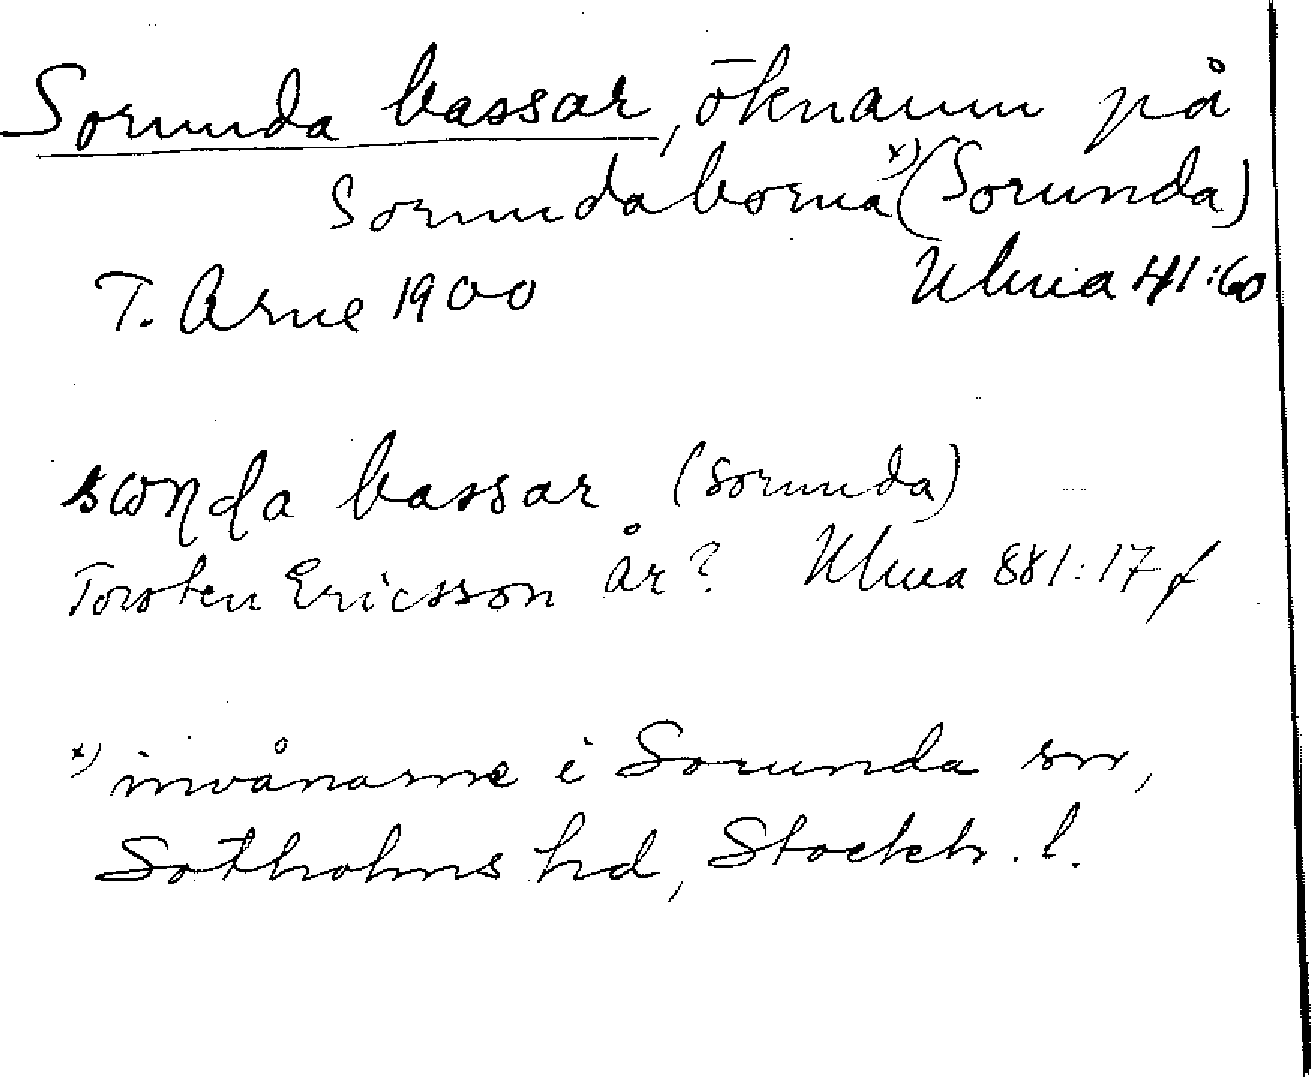 Sorunda bassar, öknamn på
Sorundaborna x) (Sorunda)
T. Arne 1900 Ulma 41:60
bassar (Sorunda)
Torsten Ericsson år? Ulma 881:17 f
x) invånarne i Sorunda sn,
Sotholms hd, Stockh. l.